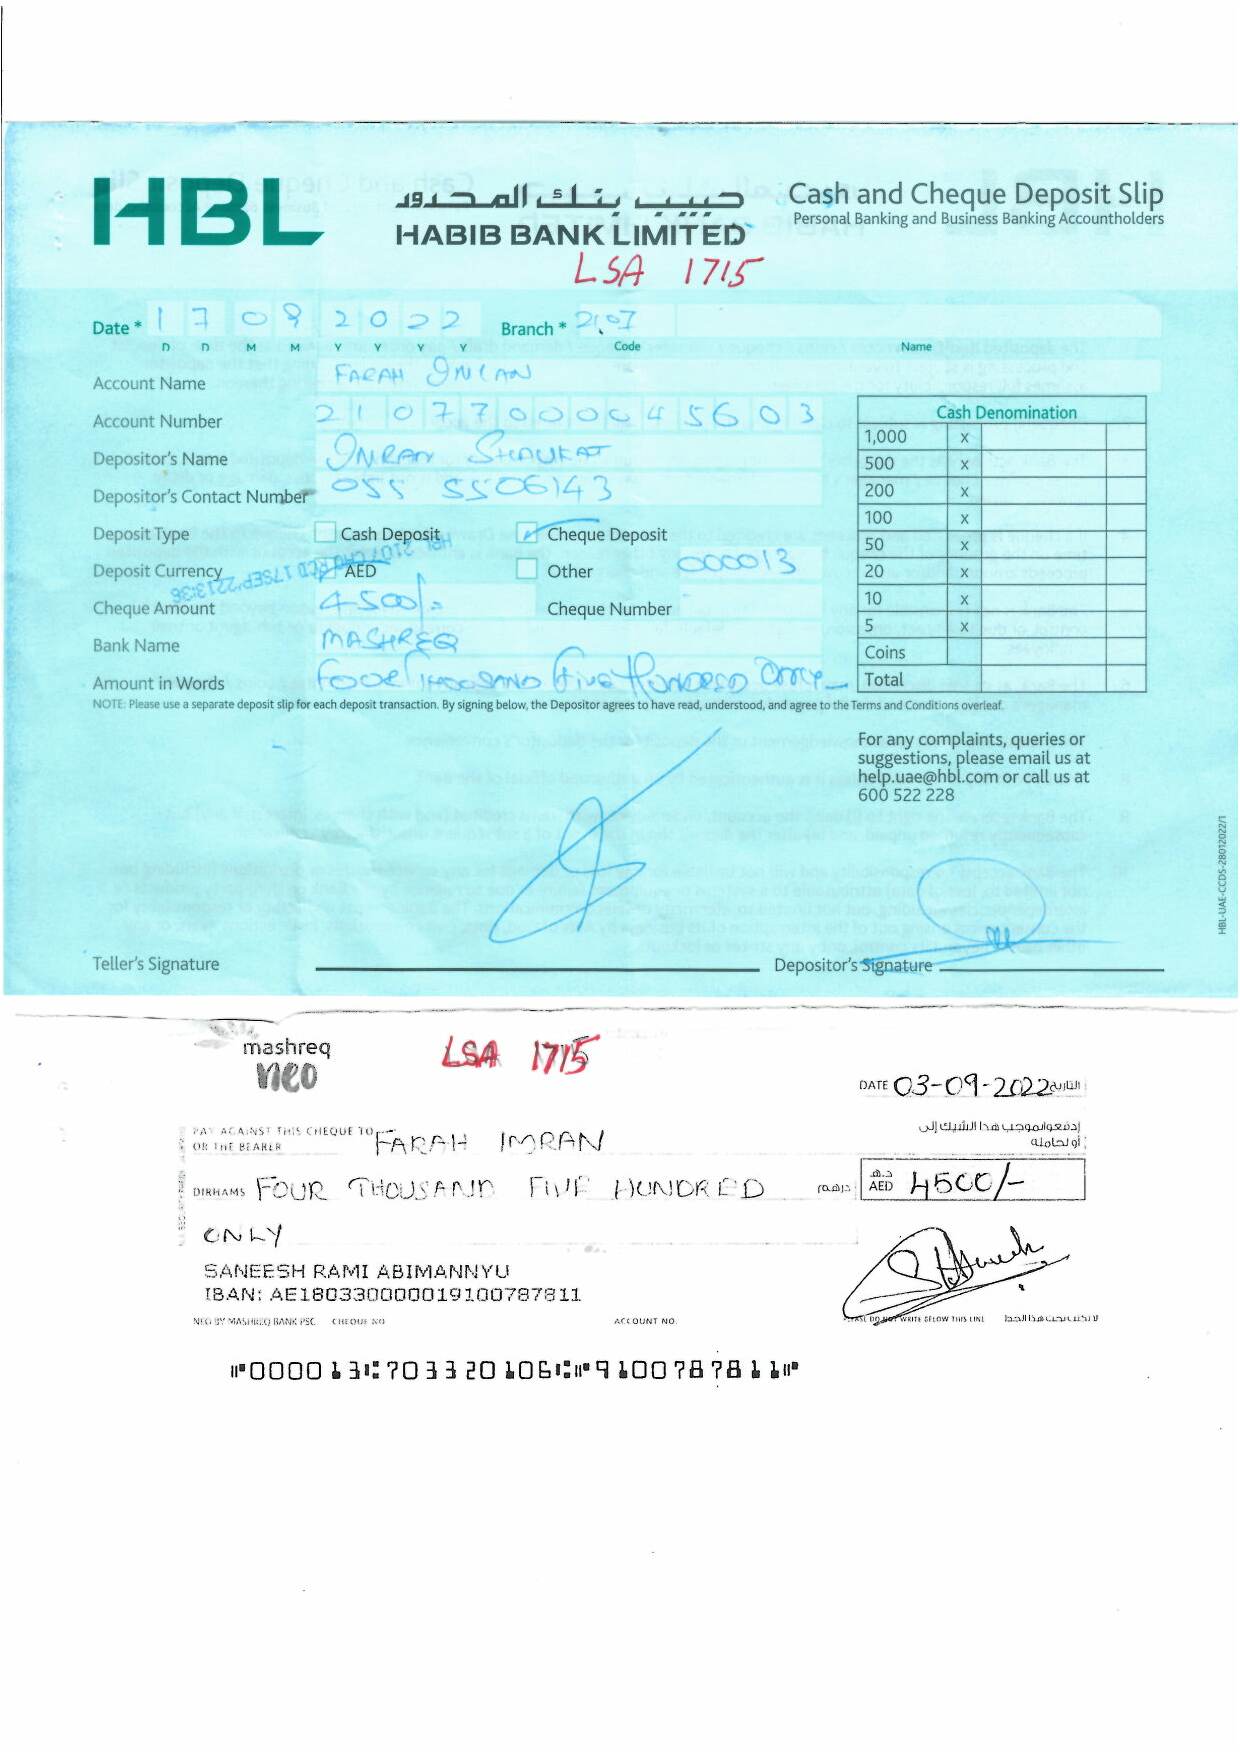 HBL
حبيب بنك المحدود
HABIB BANK LIMITED
Cash and Cheque Deposit Slip
Personal Banking and Business Banking Accountholders
LSA 1715
Date * 17 09 2022 Branch * 2107
D D M M Y Y Y Y Code Name
Account Name FARAH IMRAN
Account Number 21077000045603
Depositor's Name IMRAN SHAUKAT
Depositor's Contact Number 055 5506143
Deposit Type Cash Deposit Cheque Deposit
Deposit Currency AED Other
HBL 2107 CHQ RCD 17SEP'22 13:36
Cheque Amount 4500/- Cheque Number 000013
Bank Name MASHREQ
Amount in Words FOUR THOUSAND FIVE HUNDRED ONLY
Cash Denomination
1,000 x
500 x
200 x
100 x
50 x
20 x
10 x
5 x
Coins
Total
NOTE: Please use a separate deposit slip for each deposit transaction. By signing below, the Depositor agrees to have read, understood, and agree to the Terms and Conditions overleaf.
For any complaints, queries or
suggestions, please email us at
help.uae@hbl.com or call us at
600 522 228
HBL-UAE-CCDS-28012022/1
Teller's Signature Depositor's Signature
mashreq
neo
LSA 1715
DATE 03-09-2022 التاريخ
PAY AGAINST THIS CHEQUE TO FARAH IMRAN إدفعوا بموجب هذا الشيك إلى
OR THE BEARER أو لحامله
DIRHAMS FOUR THOUSAND FIVE HUNDRED درهم د.هـ AED 4500/-
ONLY
SANEESH RAMI ABIMANNYU
IBAN: AE180330000019100787811
NEO BY MASHREQ BANK PSC CHEQUE NO ACCOUNT NO.
PLEASE DO NOT WRITE BELOW THIS LINE لا تكتب تحت هذا الخط
⑈000013⑆703320106⑆⑈9100787811⑈